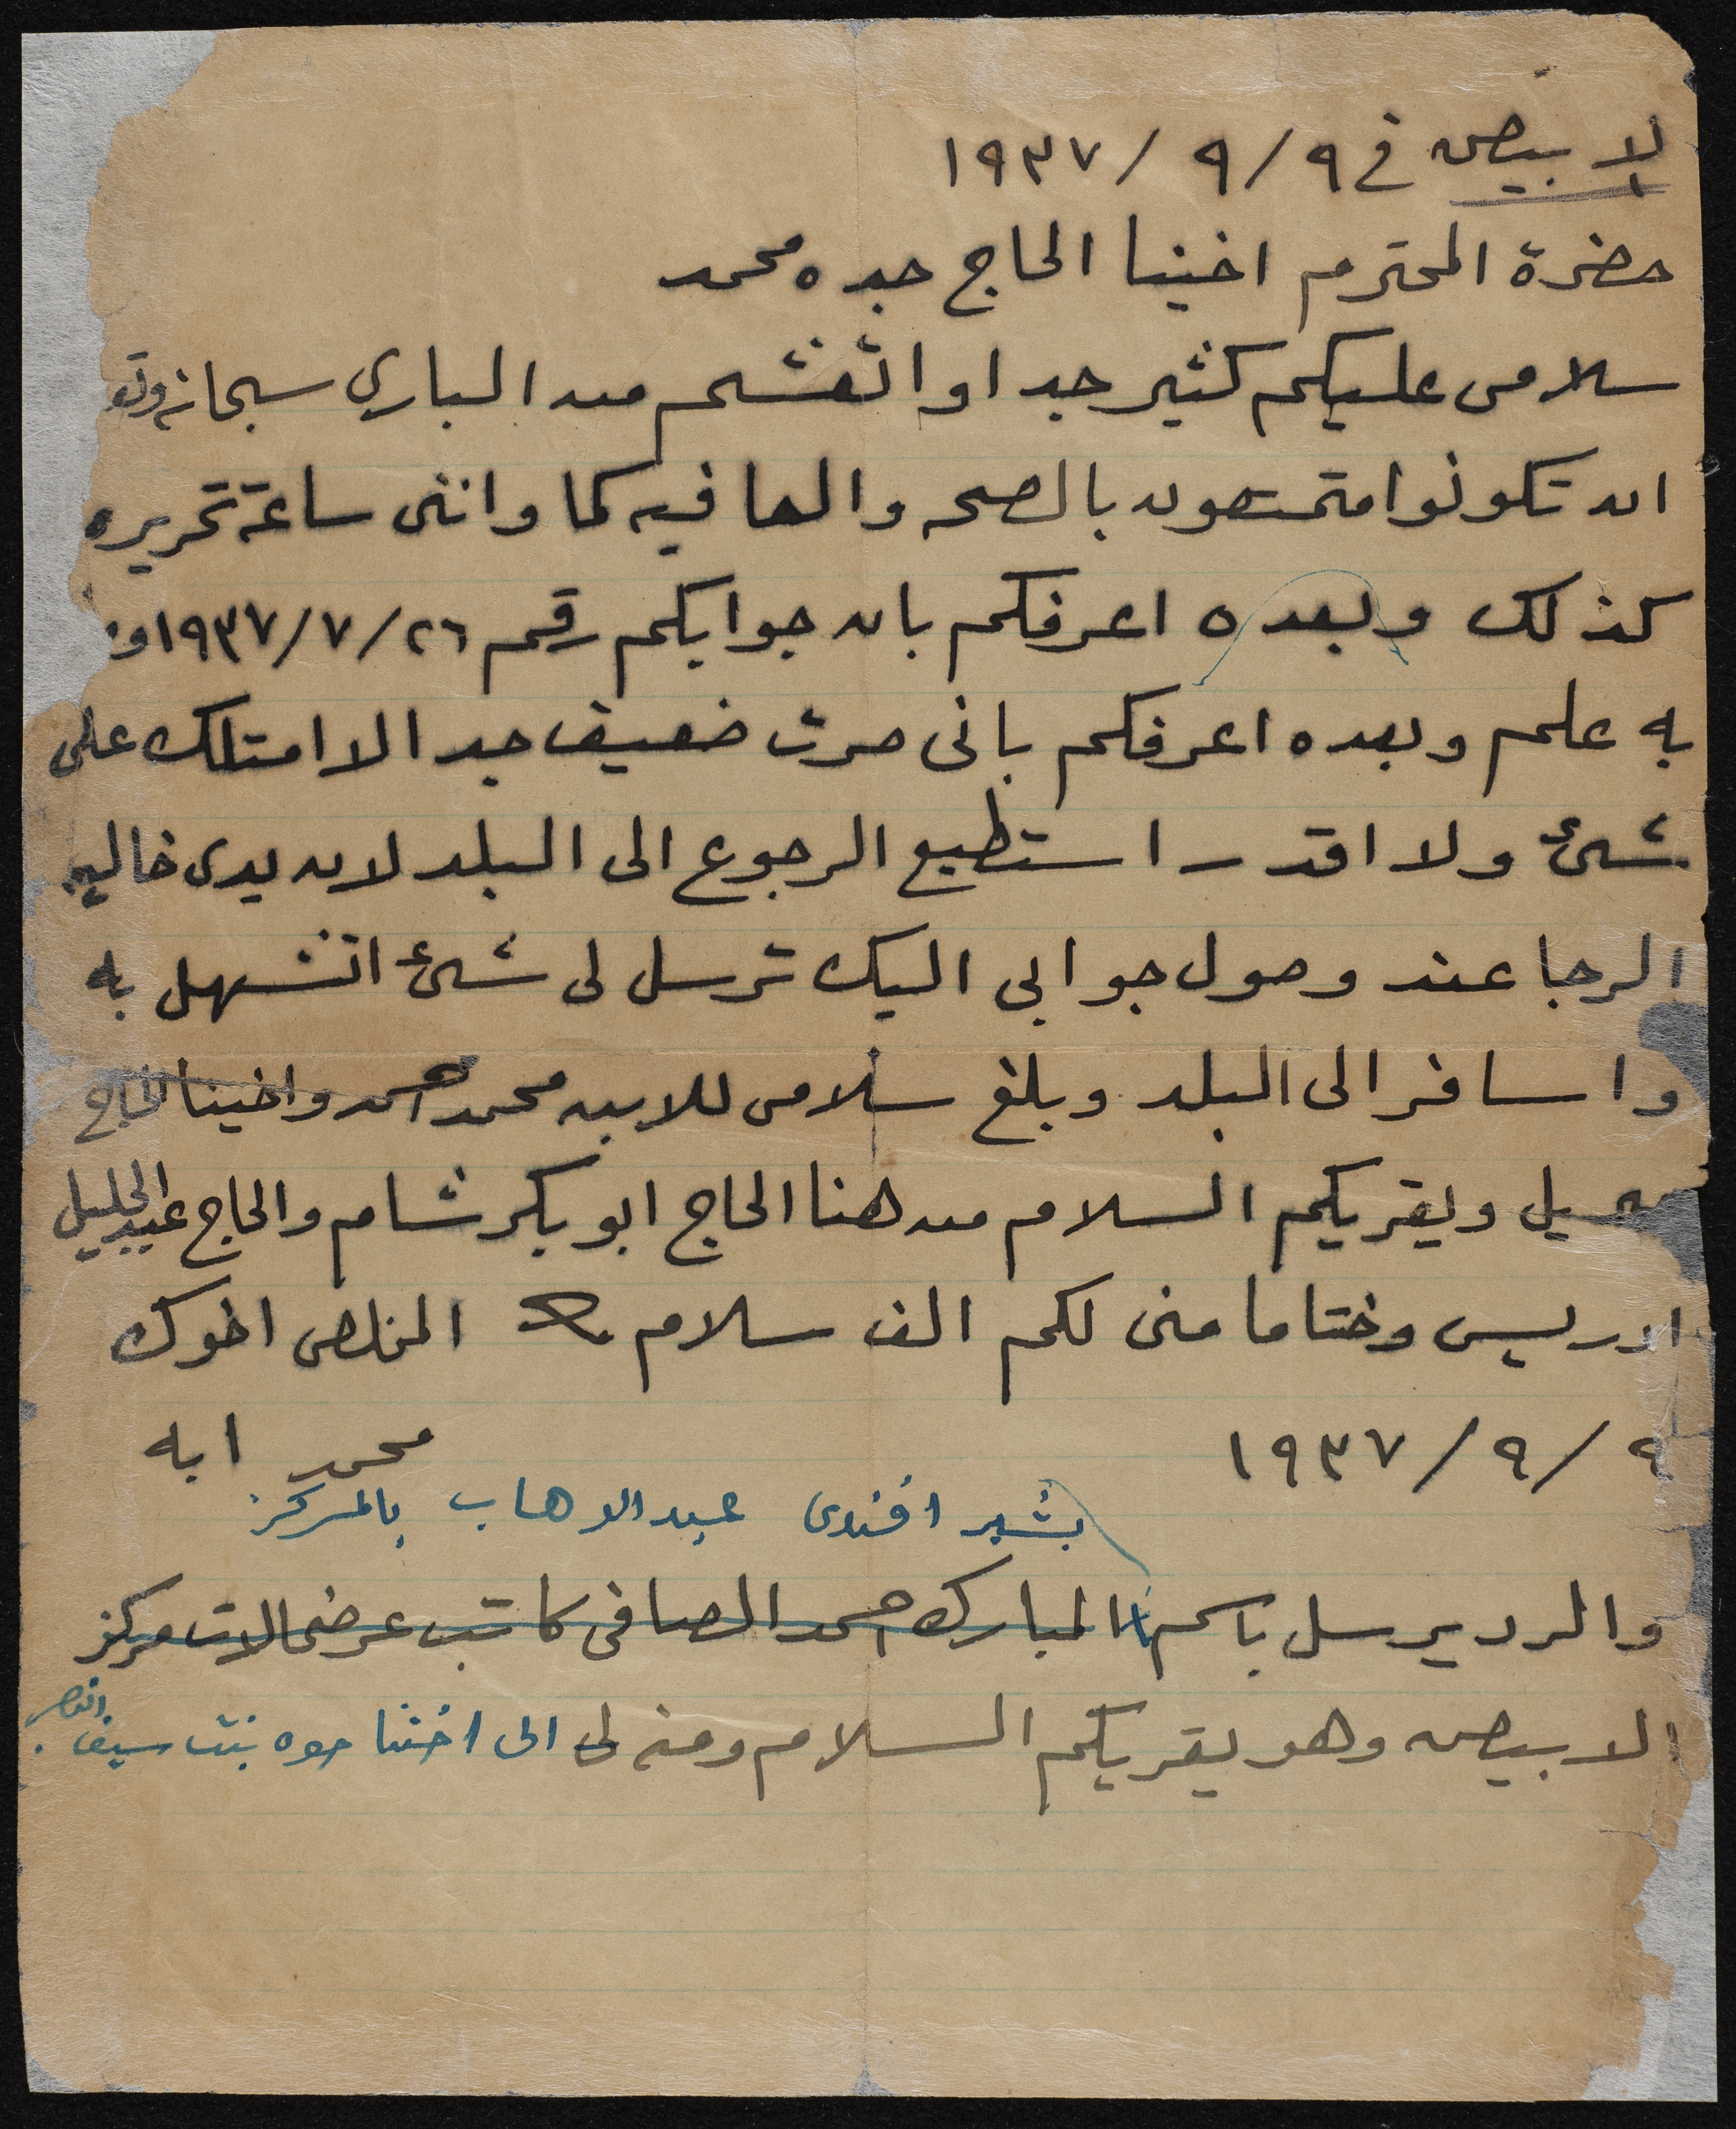 الابيض في ٩/٩/١٩٣٧
حضرة المحترم اخينا الحاج جبده محمد
سلامى عليكم كثير جدا واتعشم من الباري سبحانه وتع
ان تكونوا متمتعون بالصحه والعافيه كما واننى ساعة تحريره
كذلك وبعده اعرفكم بان جوابكم رقم ٢٦/٧/١٩٣٧
به علم وبعده اعرفكم بانى صرت ضعيف جدا لا امتلك على
شئ ولا اقدر استطيع الرجوع الى البلد لان يدى خاليه
الرجا عند وصول جوابى اليك ترسل لى شئ اتسهل به
واسافر الى البلد وبلغ سلامى للابن محمد احمد واخينا الحاج
ويقريكم السلام من هنا الحاج ابو بكر شام والحاج عبد الجليل
ادريس وختاما منى لكم الف سلام المخلص اخوك
٩/٩/١٩٣٧
محمد ابه
بشير افندى عبد الوهاب بالمركز
والرد يرسل باسم المبارك احمد الصافى كاتب عرضحالات مركز
الابيض وهو يقريكم السلام ومنه لى الى اختنا حوه بنت سيف